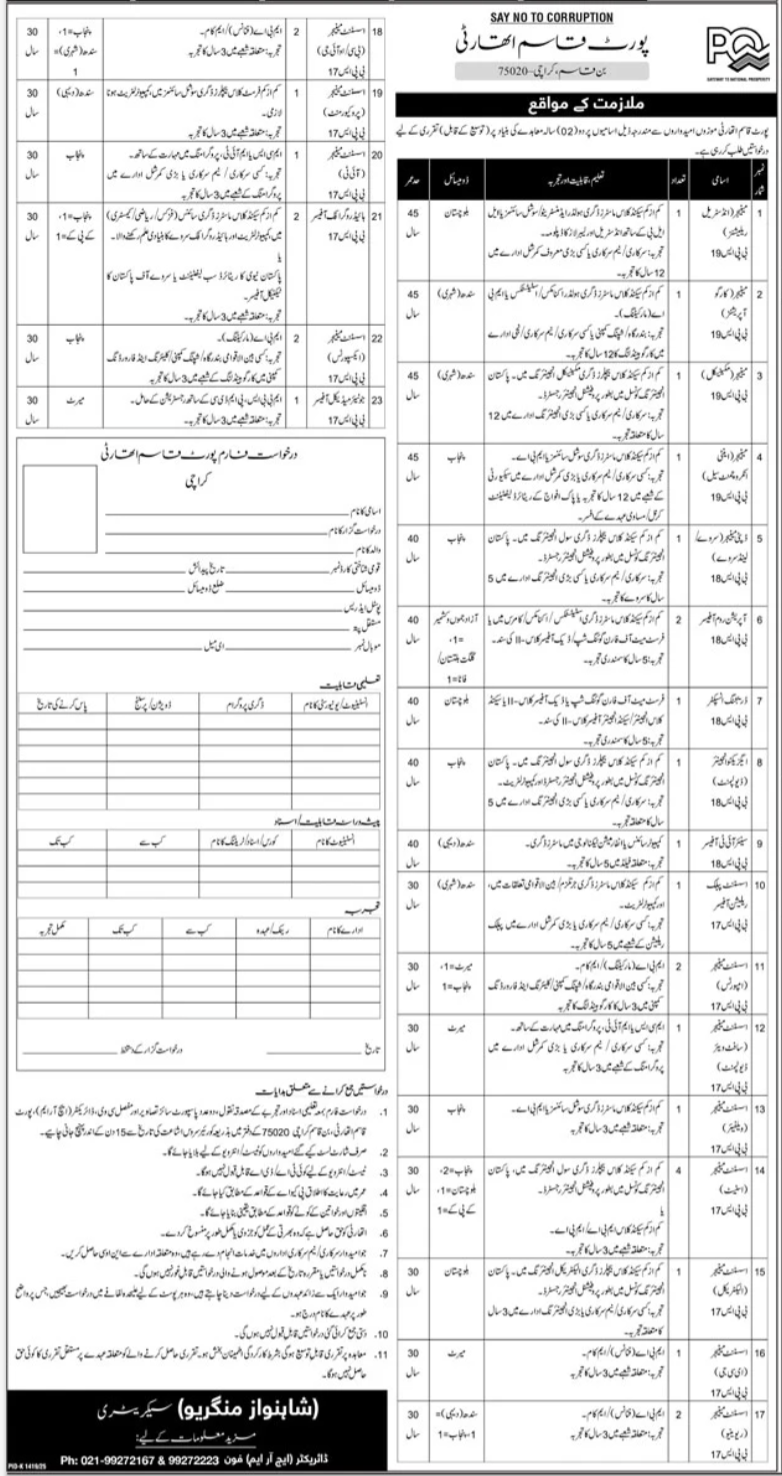 SAY NO TO CORRUPTION
پورٹ قاسم اتھارٹی
بن قاسم، کراچی-75020
PQA
GATEWAY TO NATIONAL PROSPERITY
ملازمت کے مواقع
پورٹ قاسم اتھارٹی موزوں امیدواروں سے مندرجہ ذیل اسامیوں پر دو (02) سالہ معاہدے کی بنیاد پر (توسیع کے قابل) تقرری کے لیے
درخواستیں طلب کر رہی ہے۔
نمبر شمار اسامی تعداد تعلیم، قابلیت اور تجربہ ڈومیسائل حد عمر
1 مینیجر (انڈسٹریل 1 کم از کم سیکنڈ کلاس ماسٹرز ڈگری ہولڈر ایڈمنسٹریٹو/سوشل سائنسز یا ایل بلوچستان 45
ریلیشنز) ایل بی کے ساتھ انڈسٹریل اور لیبر لاز کا ڈپلومہ۔ سال
بی پی ایس 19 تجربہ: سرکاری/ نیم سرکاری یا کسی بڑی معروف کمرشل ادارے میں
12 سال کا تجربہ۔
2 مینیجر (کارگو 1 کم از کم سیکنڈ کلاس ماسٹرز ڈگری ہولڈر اکنامکس/ اسٹیٹسٹکس یا ایم بی سندھ (شہری) 45
آپریشنز) اے (مارکیٹنگ)۔ سال
بی پی ایس 19 تجربہ: بندرگاہ/ شپنگ کمپنی یا کسی سرکاری/ نیم سرکاری/ نجی ادارے
میں کارگو ہینڈلنگ کا 12 سال کا تجربہ۔
3 مینیجر (مکینیکل) 1 کم از کم سیکنڈ کلاس ماسٹرز ڈگری مکینیکل انجینئرنگ میں۔ پاکستان سندھ (شہری) 45
بی پی ایس 19 انجینئرنگ کونسل میں بطور پروفیشنل انجینئر رجسٹرڈ۔ سال
تجربہ: سرکاری/ نیم سرکاری یا کسی بڑی انجینئرنگ ادارے میں 12
سال کا متعلقہ تجربہ۔
4 مینیجر (اینٹی 1 کم از کم سیکنڈ کلاس ماسٹرز ڈگری سوشل سائنسز یا ایم بی اے۔ پنجاب 45
انکروچمنٹ سیل) تجربہ: کسی سرکاری/ نیم سرکاری یا بڑی کمرشل ادارے میں سیکیورٹی سال
بی پی ایس 19 کے شعبے میں 12 سال کا تجربہ یا پاک افواج کے ریٹائرڈ لیفٹیننٹ
کرنل/ مساوی عہدے کے افسر۔
5 ڈپٹی مینیجر (سروے/ 1 کم از کم سیکنڈ کلاس بیچلرز ڈگری سول انجینئرنگ میں۔ پاکستان پنجاب 40
لینڈ سروے) انجینئرنگ کونسل میں بطور پروفیشنل انجینئر رجسٹرڈ۔ سال
بی پی ایس 18 تجربہ: سرکاری/ نیم سرکاری یا کسی بڑی انجینئرنگ ادارے میں 5
سال کا سروے کا تجربہ۔
6 آپریشن روم آفیسر 2 کم از کم سیکنڈ کلاس ماسٹرز ڈگری اسٹیٹسٹکس/ اکنامکس/ کامرس میں یا آزاد جموں و کشمیر 40
بی پی ایس 18 فرسٹ میٹ آف فارن گوئنگ شپ/ ڈیک آفیسر کلاس-II کی سند۔ =1، سال
تجربہ: 5 سال کا سمندری تجربہ۔ گلگت بلتستان/
فاٹا=1
7 ڈریجنگ انسپکٹر 1 فرسٹ میٹ آف فارن گوئنگ شپ یا ڈیک آفیسر کلاس-II یا سیکنڈ بلوچستان 40
بی پی ایس 18 کلاس انجینئر/ سیکنڈ انجینئر آفیسر کلاس-II کی سند۔ سال
تجربہ: 5 سال کا سمندری تجربہ۔
8 ایگزیکٹو انجینئر 1 کم از کم سیکنڈ کلاس بیچلرز ڈگری سول انجینئرنگ میں۔ پاکستان پنجاب 40
(ڈیولپمنٹ) انجینئرنگ کونسل میں بطور پروفیشنل انجینئر رجسٹرڈ اور کمپیوٹر لٹریٹ۔ سال
بی پی ایس 18 تجربہ: سرکاری/ نیم سرکاری یا کسی بڑی انجینئرنگ ادارے میں 5
سال کا متعلقہ تجربہ۔
9 سینئر آئی ٹی آفیسر 1 کمپیوٹر سائنس یا انفارمیشن ٹیکنالوجی میں ماسٹرز ڈگری۔ سندھ (دیہی) 40
بی پی ایس 18 تجربہ: متعلقہ فیلڈ میں 5 سال کا تجربہ۔ سال
10 اسسٹنٹ پبلک 1 کم از کم سیکنڈ کلاس ماسٹرز ڈگری جرنلزم/ بین الاقوامی تعلقات میں، سندھ (شہری) 30
ریلیشن آفیسر اور کمپیوٹر لٹریٹ۔ سال
بی پی ایس 17 تجربہ: کسی سرکاری/ نیم سرکاری یا بڑی کمرشل ادارے میں پبلک
ریلیشن کے شعبے میں 5 سال کا تجربہ۔
11 اسسٹنٹ مینیجر 2 ایم بی اے (مارکیٹنگ)/ ایم کام۔ میرٹ=1، 30
(امپورٹس) تجربہ: کسی بین الاقوامی بندرگاہ/ شپنگ کمپنی/ کلیئرنگ اینڈ فارورڈنگ پنجاب=1 سال
بی پی ایس 17 کمپنی میں 3 سال کا کارگو ہینڈلنگ کا تجربہ
12 اسسٹنٹ مینیجر 1 ایم سی ایس یا ایم آئی ٹی، پروگرامنگ میں مہارت کے ساتھ۔ میرٹ 30
(سافٹ ویئر تجربہ: کسی سرکاری/ نیم سرکاری یا بڑی کمرشل ادارے میں سال
ڈیولپمنٹ) پروگرامنگ کے شعبے میں 3 سال کا تجربہ۔
بی پی ایس 17
13 اسسٹنٹ مینیجر 1 کم از کم سیکنڈ کلاس ماسٹرز ڈگری سوشل سائنسز یا ایم بی اے۔ پنجاب 30
(ویلفیئر) تجربہ: متعلقہ شعبے میں 3 سال کا تجربہ سال
بی پی ایس 17
14 اسسٹنٹ مینیجر 4 کم از کم سیکنڈ کلاس بیچلرز ڈگری سول انجینئرنگ میں، پاکستان پنجاب=2، 30
(اسٹیٹ) انجینئرنگ کونسل میں بطور پروفیشنل انجینئر رجسٹرڈ۔ بلوچستان=1، سال
بی پی ایس 17 یا کے پی کے=1
کم از کم سیکنڈ کلاس ایم بی اے/ ایم پی اے۔
تجربہ: متعلقہ شعبے میں 3 سال کا تجربہ۔
15 اسسٹنٹ مینیجر 1 کم از کم سیکنڈ کلاس بیچلرز ڈگری الیکٹریکل انجینئرنگ میں۔ پاکستان بلوچستان 30
(الیکٹریکل) انجینئرنگ کونسل میں بطور پروفیشنل انجینئر رجسٹرڈ۔ سال
بی پی ایس 17 تجربہ: کسی سرکاری/ نیم سرکاری یا بڑی انجینئرنگ ادارے میں 3 سال
کا متعلقہ تجربہ۔
16 اسسٹنٹ مینیجر 1 ایم بی اے (فنانس)/ ایم کام۔ میرٹ 30
(ای سی جی) تجربہ: متعلقہ شعبے میں 3 سال کا تجربہ۔ سال
بی پی ایس 17
17 اسسٹنٹ مینیجر 2 ایم بی اے (فنانس)/ ایم کام۔ سندھ (دیہی)= 30
(ریونیو) تجربہ: متعلقہ شعبے میں 3 سال کا تجربہ۔ 1، پنجاب=1 سال
بی پی ایس 17
18 اسسٹنٹ مینیجر 2 ایم بی اے (فنانس)/ ایم کام۔ پنجاب=1، 30
(پی سی/ او آئی جی) تجربہ: متعلقہ شعبے میں 3 سال کا تجربہ۔ سندھ (شہری)= سال
بی پی ایس 17 1
19 اسسٹنٹ مینیجر 1 کم از کم فرسٹ کلاس بیچلرز ڈگری سوشل سائنسز میں، کمپیوٹر لٹریٹ ہونا سندھ (دیہی) 30
(پروکیورمنٹ) لازمی۔ سال
بی پی ایس 17 تجربہ: متعلقہ شعبے میں 3 سال کا تجربہ۔
20 اسسٹنٹ مینیجر 1 ایم سی ایس یا ایم آئی ٹی، پروگرامنگ میں مہارت کے ساتھ۔ پنجاب 30
(آئی ٹی) تجربہ: کسی سرکاری/ نیم سرکاری یا بڑی کمرشل ادارے میں سال
بی پی ایس 17 پروگرامنگ کے شعبے میں 3 سال کا تجربہ۔
21 ہائیڈروگرافک آفیسر 2 کم از کم سیکنڈ کلاس ماسٹرز ڈگری سائنس (فزکس/ ریاضی/ کیمسٹری) پنجاب=1، 30
بی پی ایس 17 میں، کمپیوٹر لٹریٹ اور ہائیڈروگرافک سروے کا بنیادی علم رکھنے والا۔ کے پی کے=1 سال
یا
پاکستان نیوی کا ریٹائرڈ سب لیفٹیننٹ یا سروے آف پاکستان کا
ٹیکنیکل آفیسر۔
تجربہ: متعلقہ شعبے میں 3 سال کا تجربہ۔
22 اسسٹنٹ مینیجر 2 ایم بی اے (مارکیٹنگ)۔ پنجاب 30
(ایکسپورٹس) تجربہ: کسی بین الاقوامی بندرگاہ/ شپنگ کمپنی/ کلیئرنگ اینڈ فارورڈنگ سال
بی پی ایس 17 کمپنی میں کارگو ہینڈلنگ کے شعبے میں 3 سال کا تجربہ۔
23 جونیئر میڈیکل آفیسر 1 ایم بی بی ایس، پی ایم ڈی سی کے ساتھ رجسٹریشن کے حامل۔ میرٹ 30
بی پی ایس 17 تجربہ: متعلقہ شعبے میں 3 سال کا تجربہ۔ سال
درخواست فارم پورٹ قاسم اتھارٹی
کراچی
اسامی کا نام
درخواست گزار کا نام
والد کا نام
قومی شناختی کارڈ نمبر تاریخ پیدائش
ڈومیسائل ضلع ڈومیسائل
پوسٹل ایڈریس
مستقل پتہ
موبائل نمبر ای میل
تعلیمی قابلیت
انسٹیٹیوٹ/ یونیورسٹی کا نام ڈگری پروگرام ڈویژن/ پرسنٹیج پاس کرنے کی تاریخ
پیشہ ورانہ قابلیت/ اسناد
انسٹیٹیوٹ کا نام کورس/ اسناد/ ٹریننگ کا نام کب سے کب تک
تجربہ
ادارے کا نام رینک/ عہدہ کب سے کب تک مکمل تجربہ
تاریخ درخواست گزار کے دستخط
درخواستیں جمع کرانے سے متعلق ہدایات
1. درخواست فارم بمعہ تعلیمی اسناد اور تجربے کے مصدقہ نقول، دو عدد پاسپورٹ سائز تصاویر اور مفصل سی وی، ڈائریکٹر (ایچ آر ایم)، پورٹ
قاسم اتھارٹی، بن قاسم کراچی 75020 کے دفتر میں بذریعہ کوریئر سروس اشاعت کی تاریخ سے 15 دن کے اندر پہنچ جانی چاہیے۔
2. صرف شارٹ لسٹ کیے گئے امیدواروں کو ٹیسٹ/ انٹرویو کے لیے بلایا جائے گا۔
3. ٹیسٹ/ انٹرویو کے لیے کوئی ٹی اے/ ڈی اے قابل قبول نہیں ہوگا۔
4. عمر میں رعایت کا اطلاق پی کیو اے کے قواعد کے مطابق کیا جائے گا۔
5. اقلیتوں اور خواتین کے کوٹے کو قواعد کے مطابق یقینی بنایا جائے گا۔
6. اتھارٹی کو حق حاصل ہے کہ وہ بھرتی کے عمل کو جزوی یا مکمل طور پر منسوخ کر دے۔
7. جو امیدوار سرکاری/ نیم سرکاری اداروں میں خدمات انجام دے رہے ہیں، وہ متعلقہ ادارے سے این او سی حاصل کریں۔
8. نامکمل درخواستیں یا مقررہ تاریخ کے بعد موصول ہونے والی درخواستیں قابل غور نہیں ہوں گی۔
9. جو امیدوار ایک سے زائد عہدوں کے لیے درخواست دینا چاہتے ہیں، وہ ہر پوسٹ کے لیے علیحدہ لفافے میں درخواست بھیجیں، جس پر واضح
طور پر عہدے کا نام درج ہو۔
10. دستی جمع کرائی گئی درخواستیں قابل قبول نہیں ہوں گی۔
11. معاہدہ پر تقرری قابل توسیع ہوگی بشرط کارکردگی اطمینان بخش ہو۔ تقرری حاصل کرنے والے کو متعلقہ عہدے پر مستقل تقرری کا کوئی حق
حاصل نہیں ہوگا۔
(شاہنواز منگریو) سیکریٹری
مزید معلومات کے لیے:
ڈائریکٹر (ایچ آر ایم) فون Ph: 021-99272167 & 99272223
PID-K 1416/25